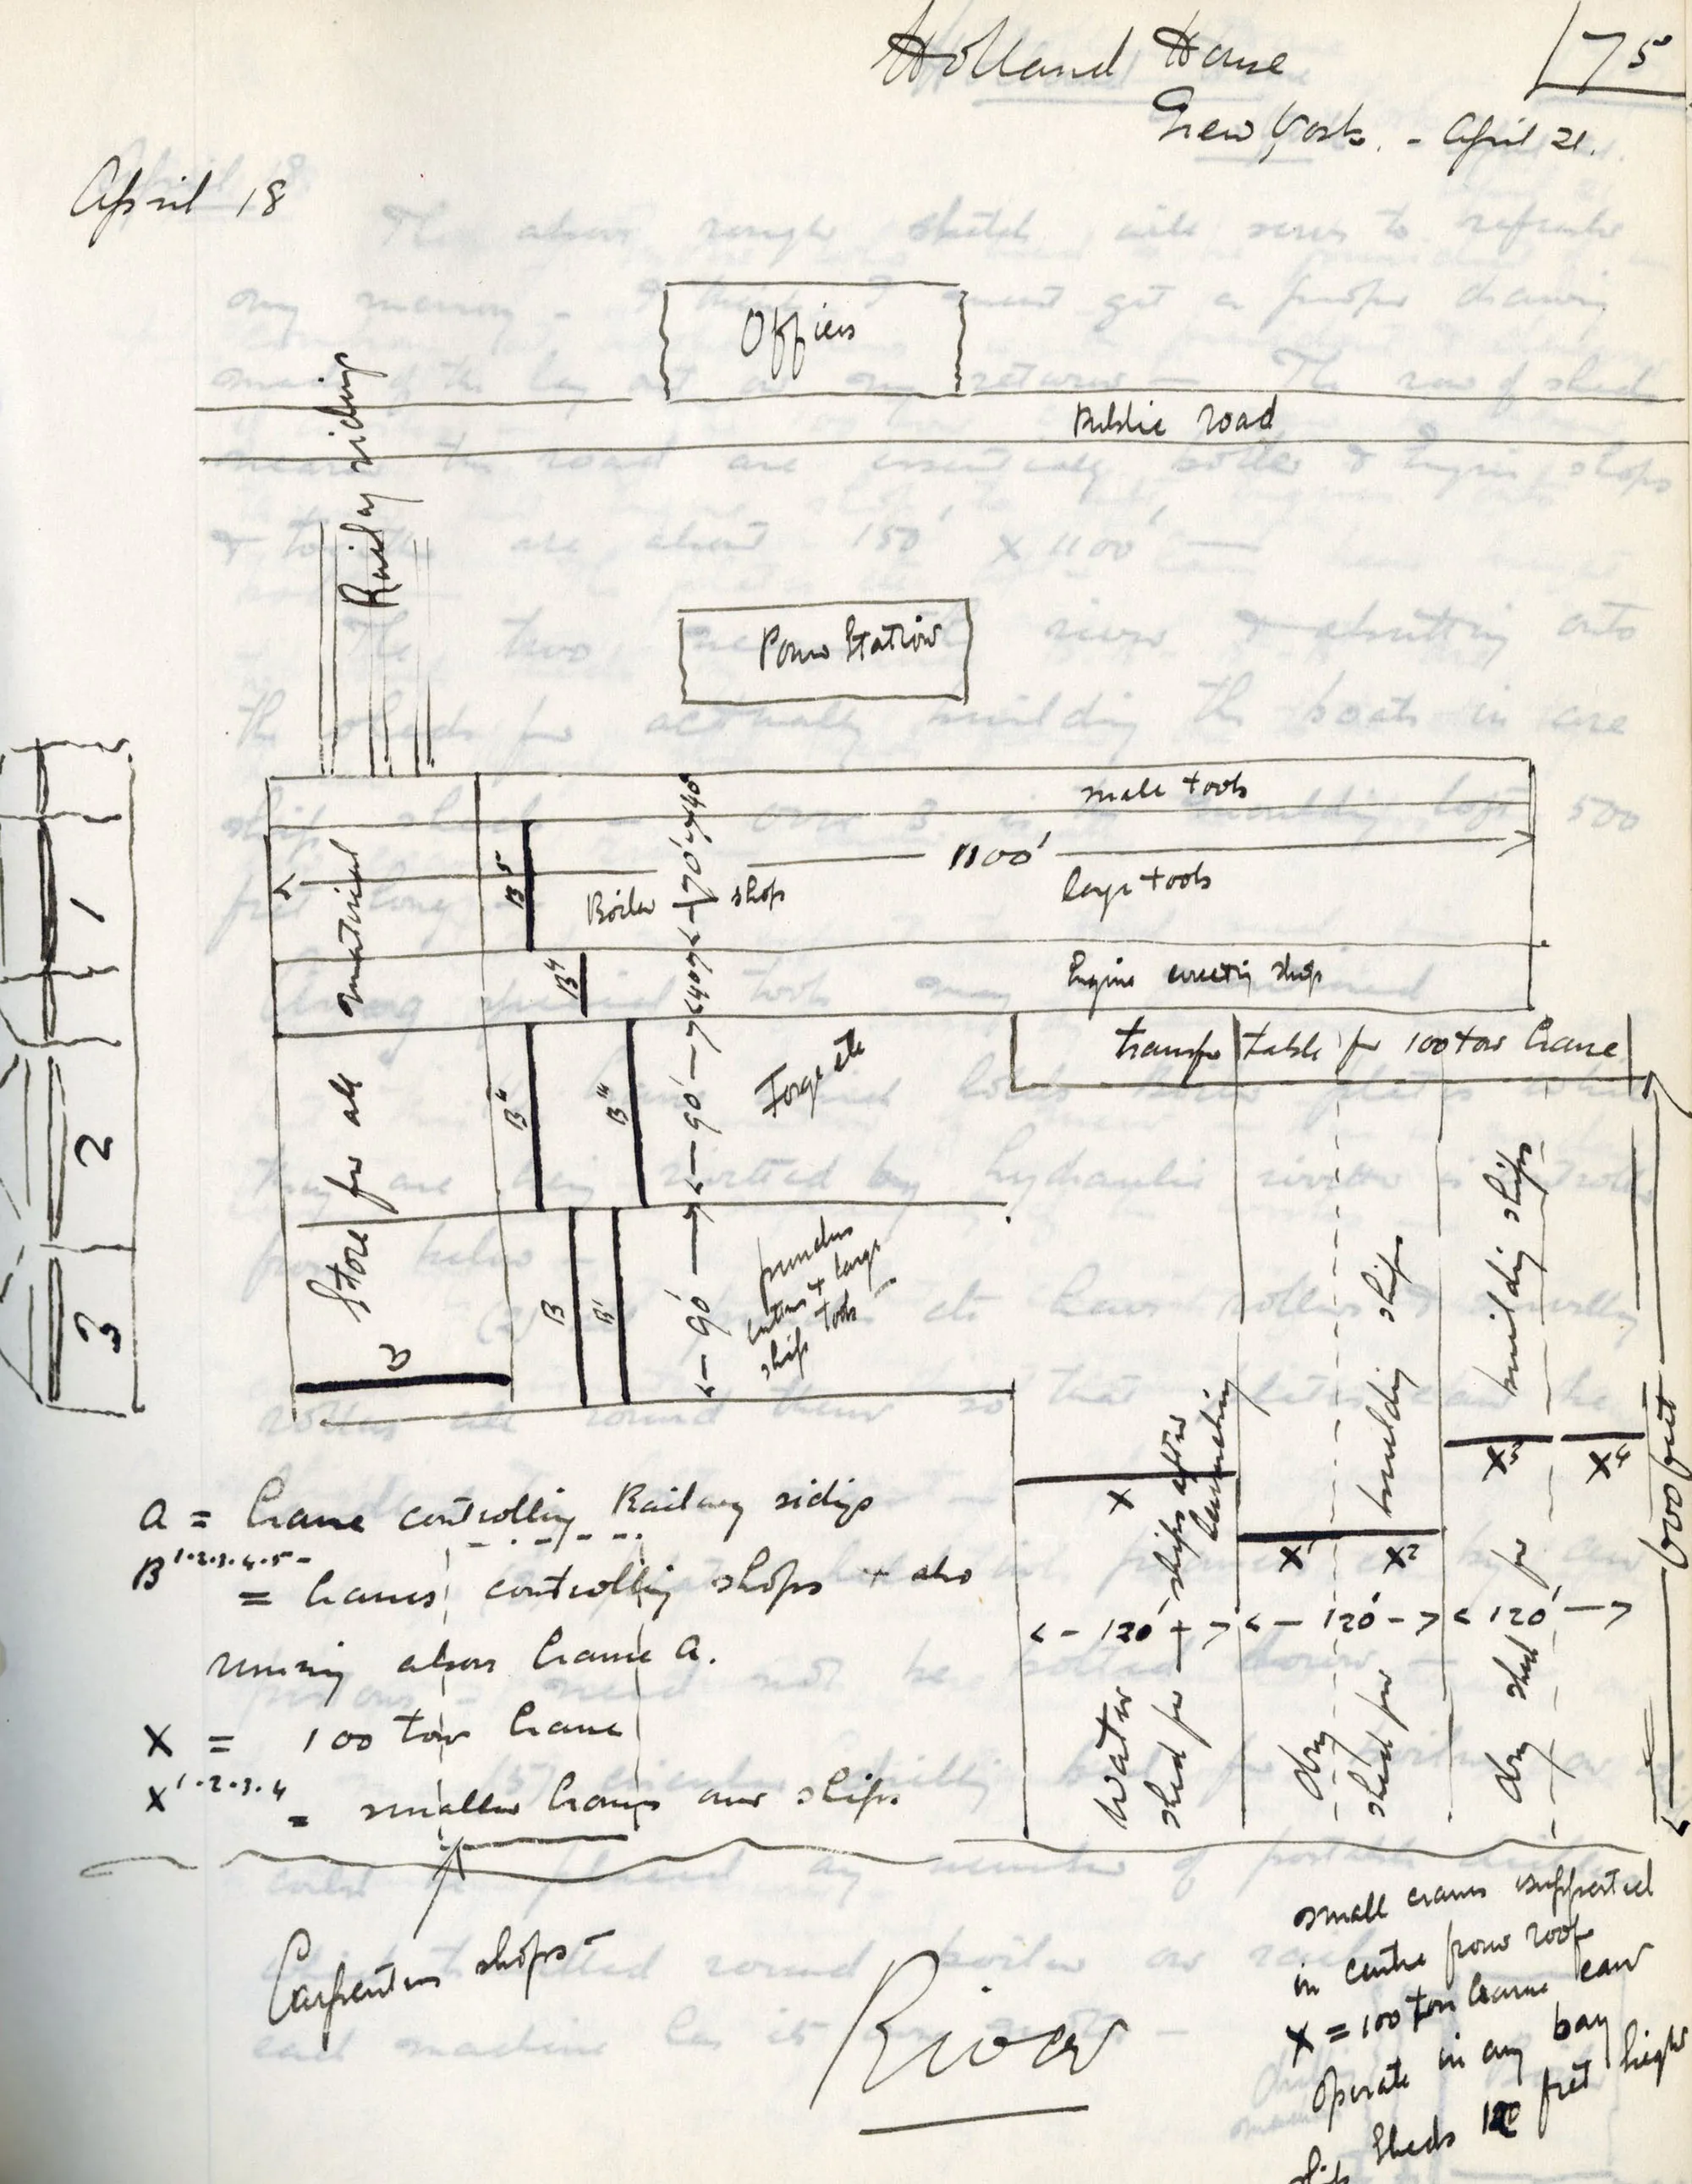 Holland House
75
New York. - April 21.
April 18
Offices
Railway sidings
Public road
Power Station
small tools
40'
70'
1100'
B5
Boiler shops
large tools
material
B4
40
Engine erecting shop
transfer table for 100 ton Crane
1
2
3
Store for all
B"
B"
90'
Forge etc
B
B'
90'
punches
cutters + large
ship tools
a
building ships
building ships
ships after
launching
X
X1 X2
X3 X4
600 feet
120' 120' 120'
Water
shed for
dry
shed for
dry shed for
a = Crane controlling Railway sidings
B 1.2.3.4.5-
= Cranes controlling shops + also
running above Crane a.
X = 100 ton Crane
X 1.2.3.4 = smaller Cranes over ships.
Carpenters shops
River
small cranes supported
in centre from roof
X = 100 ton Crane can
operate in any bay
ship sheds feet high